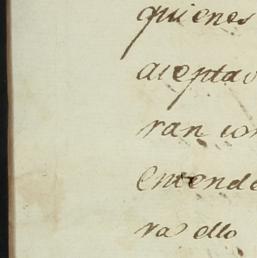 quienes
aceptav
ran con
entende
ras ello